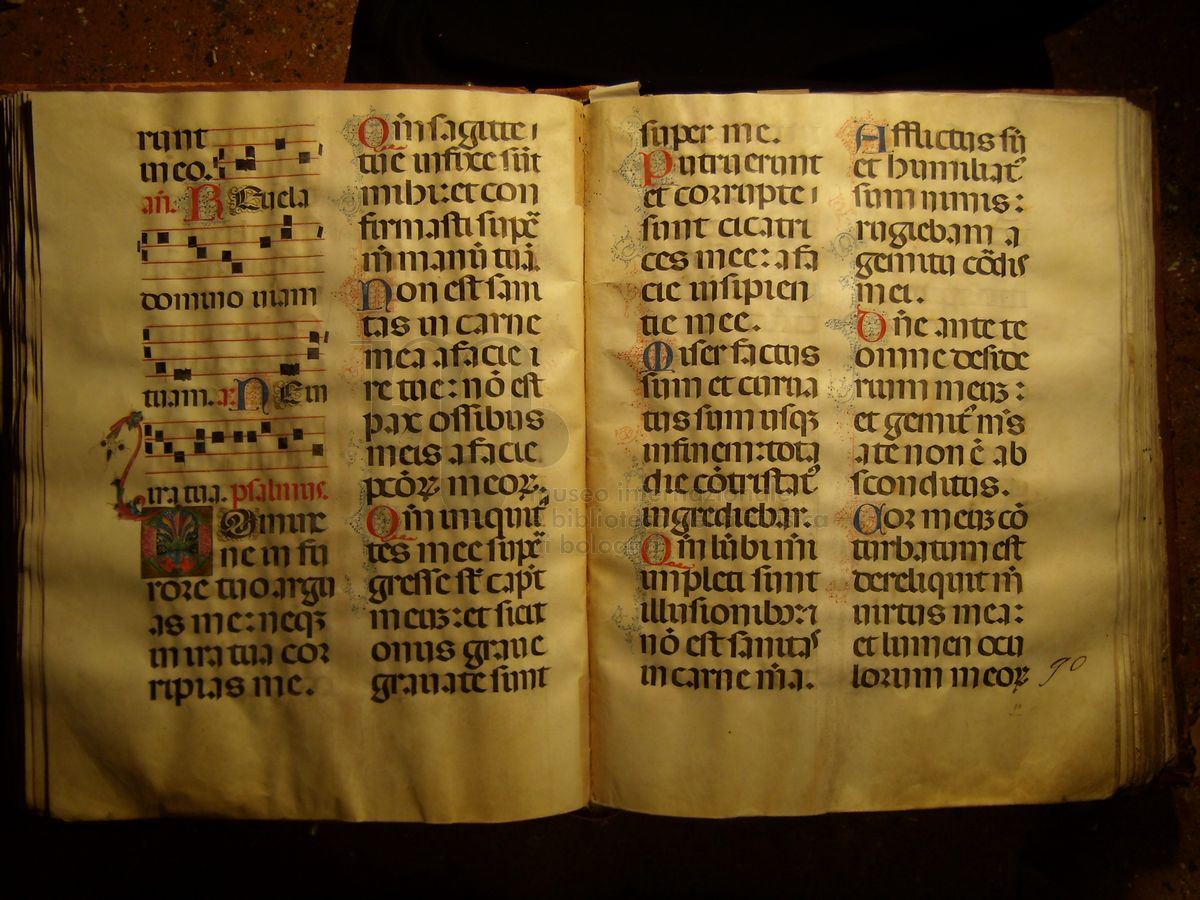 runt
meo.
añ. R Euela
domino uiam
tuam. a: N E in
ira tua. psalmus.
Domine
ne in fu
rore tuo argu
as me: neqꝫ
in ira tua cor
ripias me.
Qm̄ sagitte
tue infixe sūt
mihi: et con
firmasti supē
m̄ manū tuā.
Non est sani
tas in carne
mea a facie i
re tue: nō est
pax ossibus
meis a facie
pctōꝝ meoꝝ.
Qm̄ iniquit
tes mee supē
gresse sūt capt
meuꝫ: et sicut
onus graue
grauate sunt
super me.
Putruerunt
et corrupte
sunt cicatri
ces mee: a fa
cie insipien
tie mee.
Miser factus
sum et curua
tus sum usqꝫ
in finem: tota
die cōtristat᾽
ingrediebar.
Qm̄ lūbi m̄i
impleti sunt
illusionibꝫ:
nō est sanitas
in carne m̄a.
Afflictus sū
et humiliat᾽
sum nimis:
rugiebam a
gemitu cōdis
mei.
Dn̄e ante te
omne deside
rium meuꝫ:
et gemit᾽ m̄s
a te non ē ab
sconditus.
Cor meuꝫ cō
turbatum est
dereliquit m̄
uirtus mea:
et lumen ocu
lorum meoꝝ
90
museo internazionale
e biblioteca della musica
di bologna